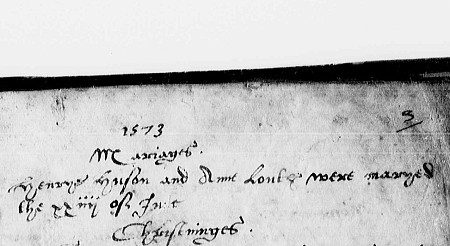 3
1573
Mariages.
Henrye Huson and Ann were maryed
the xxiiij of
Christninges.